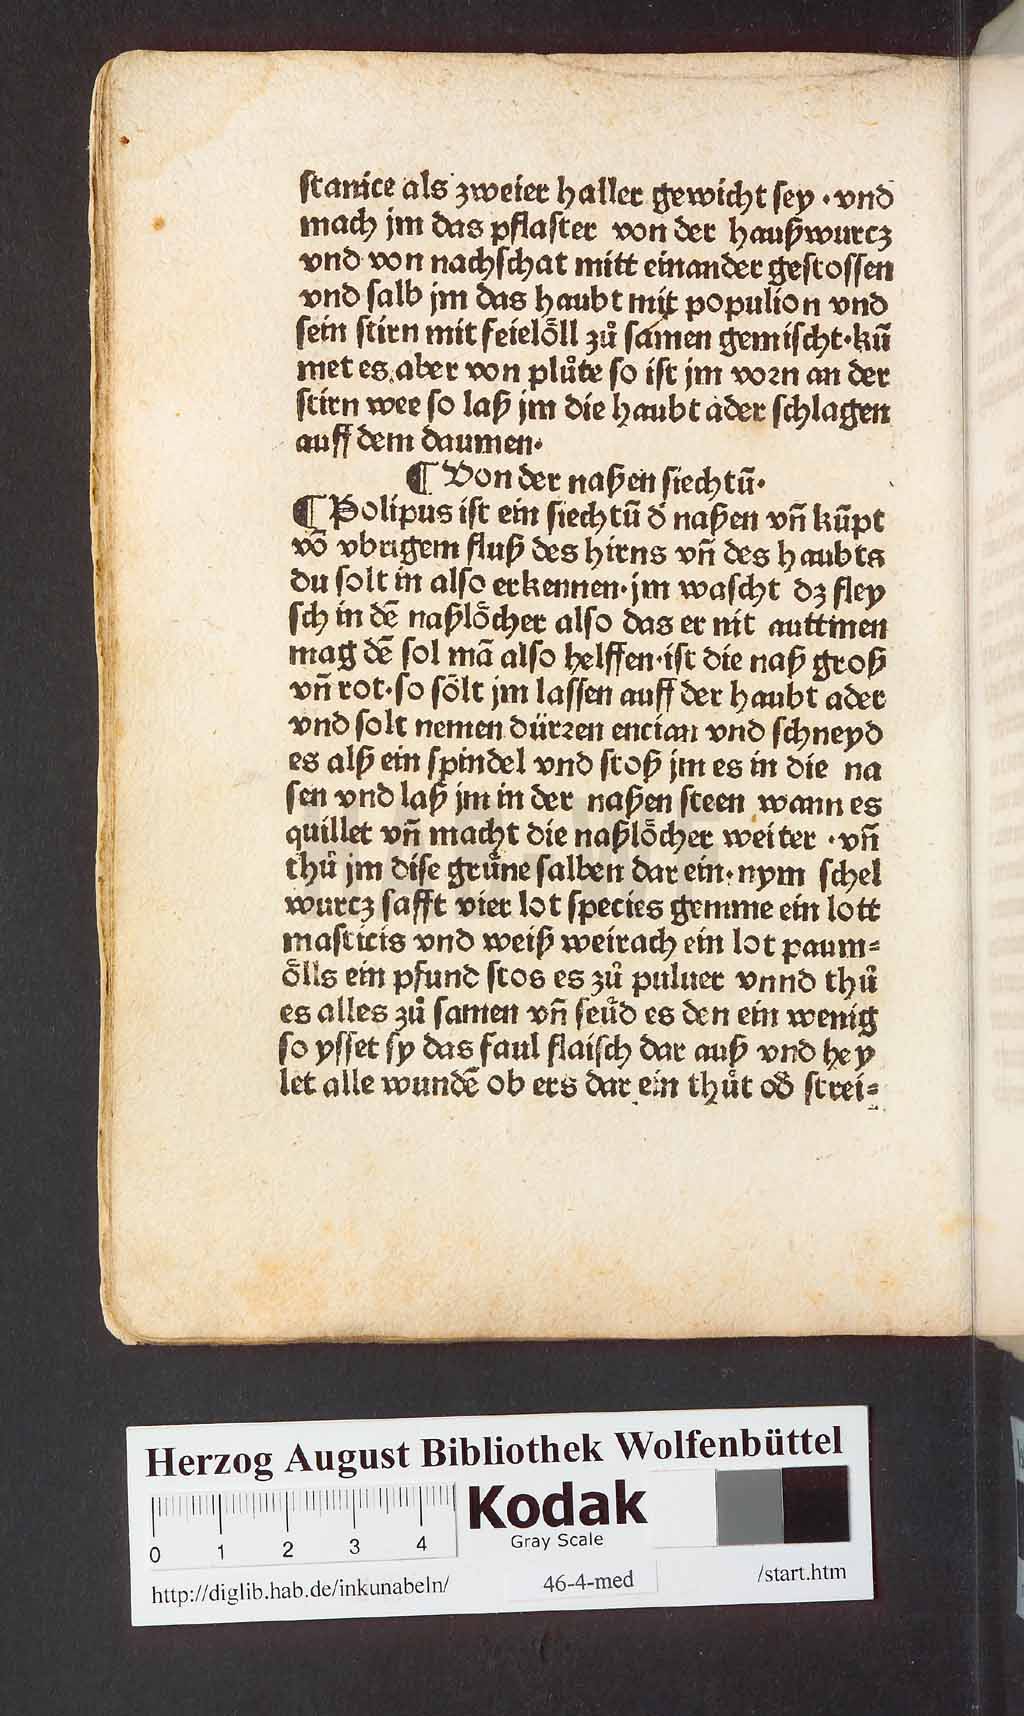 stanice als zweier haller gewicht sey · vnd
mach jm das pflaster von der haußwurcz
vnd von nachschat mitt einander gestossen
vnd salb jm das haubt mit populion vnd
sein stirn mit feielo̊ll zů samen gemischt·kū
met es aber von plůte so ist jm vorn an der
stirn wee so laß jm die haubt ader schlagen
auff dem daumen·
¶ Von der naßen siechtū·
¶ Polipus ist ein siechtū d̕ naßen vn̄ kūpt
vō vbrigem fluß des hirns vn̄ des haubts
du solt in also erkennen·jm wascht dz fley
sch in dē naßlo̊cher also das er nit auttmen
mag dē sol mā also helffen·ist die naß groß
vn̄ rot·so sőlt jm lassen auff der haubt ader
vnd solt nemen dürren encian vnd schneyd
es alß ein spindel vnd stoß jm es in die na
sen vnd laß jm in der naßen steen wann es
quillet vn̄ macht die naßlo̊cher weiter · vn̄
thů jm dise grůne salben dar ein·nym schel
wurcz safft vier lot species gemme ein lott
masticis vnd weiß weirach ein lot paum=
o̊lls ein pfund stos es zů puluer vnnd thů
es alles zů samen vn̄ seůd es den ein wenig
so ysset sy das faul flaisch dar auß vnd hey
let alle wundē ob ers dar ein thůt od̕ strei=
Herzog August Bibliothek Wolfenbüttel
0 1 2 3 4
Kodak
Gray Scale
http://diglib.hab.de/inkunabeln/
46-4-med
/start.htm